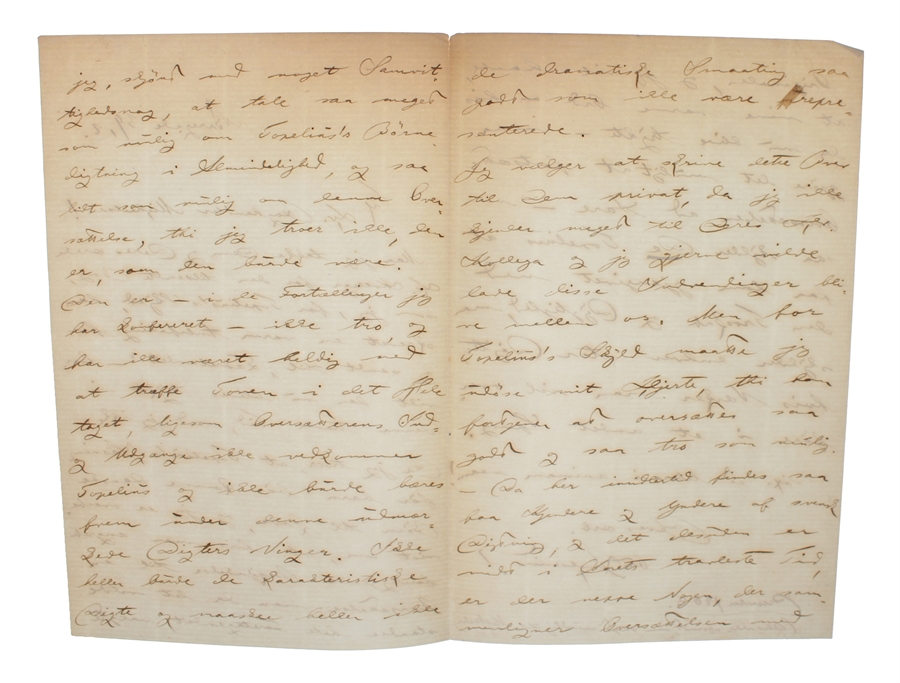 jeg, skjønt med noget Samvit-
tighedsnag, at tale saa meget
som mulig om Topelius's Børne
digtning i Almindelighed, og saa
lidt som mulig om denne Over
sættelse, thi jeg troer ikke, den
er, som den burde være.
Den er – i de Fortællinger jeg
har konfereret – ikke tro, og
har ikke været heldig med
at træffe Tonen – i det Hele
taget, ligesom Oversætterens Ind-
og Udgange ikke vedkommer
Topelius og ikke burde bæres
frem under denne udmær-
kede Digters Vinger. Ikke
heller burde de karakteristiske
Digte og maaske heller ikke
de dramatiske Smaating saa
godt som ikke være repre
senterede.
Jeg vælger at skrive dette Brev
til Dem privat, da jeg ikke
kjender meget til Deres Hr.
Kollega og jeg gjerne vilde
lade disse Indvendinger bli-
ve mellem os. Men for
Topelius's Skyld maatte jeg
udøse mit Hjerte, thi han
fortjener at oversættes saa
godt og saa tro som mulig.
– Da her imidlertid findes saa
faa Kyndere og Yndere af svensk
Digtning, og det desuden er
midt i Aarets travleste Tid,
er der neppe Nogen, der sam-
menligner Oversættelsen med